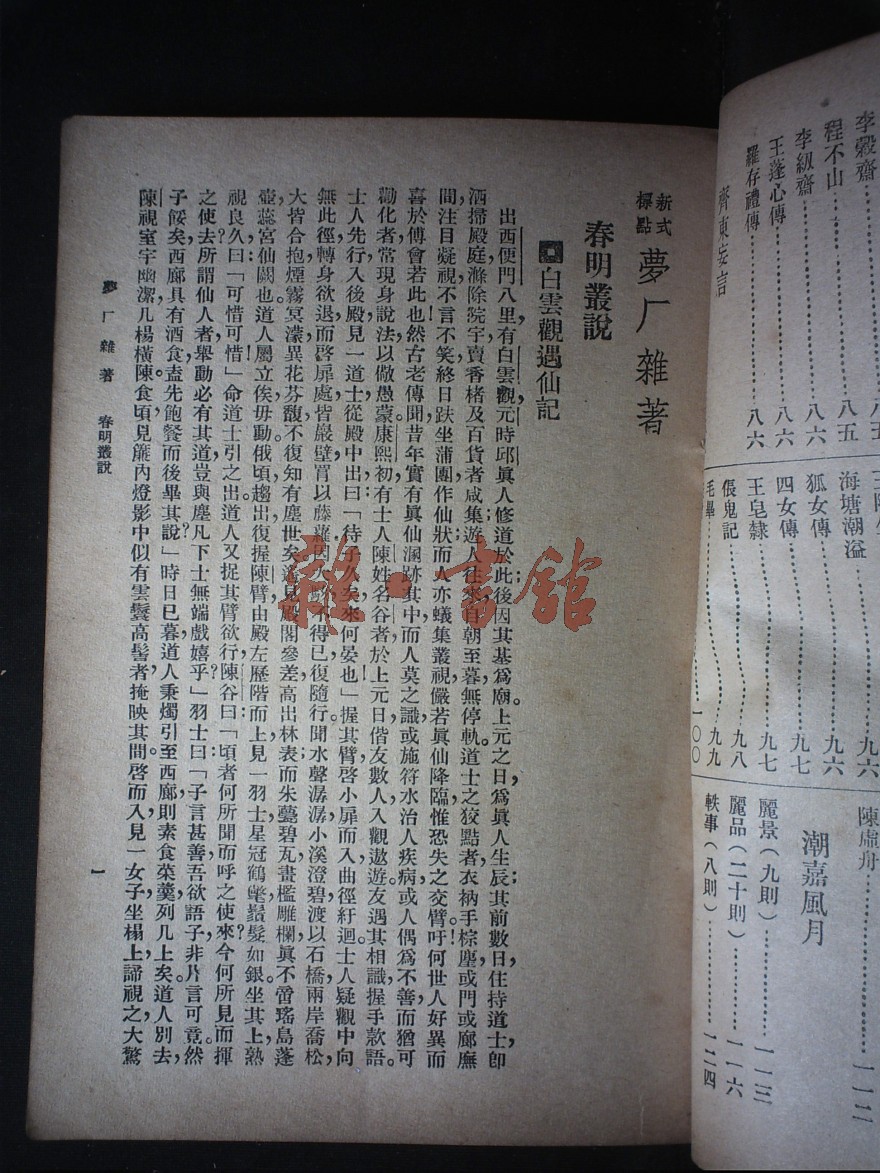 李穀齋………八五
程不山………八五
李紉齋………八六
王蓬心傳………八六
羅存禮傳………八六
齊東妄言
九六
海塘潮溢………九六
狐女傳………九七
四女傳………九七
王皂隸………九八
倀鬼記………九九
毛畢………一〇〇
陳虛舟………一一二
潮嘉風月
麗景(九則)………一一三
麗品(二十則)………一一六
軼事(八則)………一二四
新式標點 夢厂雜著
春明叢說
白雲觀遇仙記
出西便門八里,有白雲觀,元時邱眞人修道於此;後因其基爲廟。上元之日,爲眞人生辰;其前數日,住持道士卽
洒掃殿庭,滌除院宇,賣香楮及百貨者咸集;遊人往來,自朝至暮無停軌。道士之狡黠者,衣衲手棕塵,或門或廊廡
間,注目凝視,不言不笑,終日趺坐蒲團,作仙狀;而人亦蟻集叢視,儼若眞仙降臨,惟恐失之交臂。吁!何世人好異而
喜於傅會若此也!然古老傳聞,昔年實有眞仙溷跡其中,而人莫之識;或施符水,治人疾病;或人偶爲不善,而猶可
勸化者,常現身說法,以儆愚蒙。康熙初,有士人陳姓名谷者,於上元日,偕友數人,入觀遨遊,友遇其相識,握手款語。
士人先行入後殿,見一道士從殿中出曰:「待子久矣,來何晏也」握其臂,啓小扉而入,曲徑紆迴。士人疑觀中向
無此徑,轉身欲退,而啓扉處皆巖壁,罥以藤蘿,因大駭,不得已復隨行。聞水聲潺潺,小溪澄碧,渡以石橋,兩岸喬松,
大皆合抱,煙霧冥濛,異花芬馥,不復知有塵世矣。遙見殿閣參差,高出林表,而朱甍碧瓦,畫檻雕欄,眞不啻瑤島蓬
壺,蕊宮仙闕也。道人屬立俟毋動,俄頃趨出,復握陳臂,由殿左歷階而上,見一羽士,星冠鶴氅,鬚髮如銀,坐其上,熟
視良久,曰:「可惜可惜」命道士引之出。道人又捉其臂欲行,陳谷曰:「頃者何所聞而呼之使來?今何所見而揮
之使去?所謂仙人者,舉動必有其道,豈與塵凡下士無端戲嬉乎」羽士曰:「子言甚善,吾欲語子,非片言可竟。然
子餒矣,西廊具有酒食,盍先飽餐而後畢其說?」時日已暮,道人秉燭引至西廊,則素食菜羹,列几上矣。道人別去,
陳視室宇幽潔,几楊橫陳,食頃,見簾內燈影中,似有雲鬟高髻者掩映其間。啓而入,見一女子坐榻上,諦視之,大驚
夢厂雜著 春明叢說
一
雜·書館